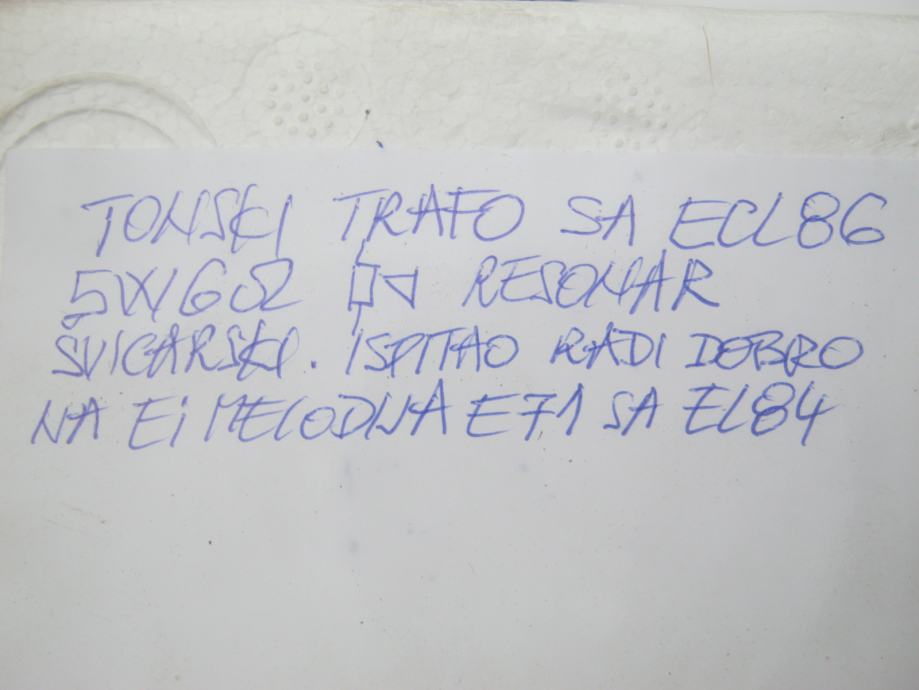 TONSKI TRAFO SA ECL86
5W/6Ω RESONAR
SVICARSKI. ISPITAO RADI DOBRO
NA Ei MELODIJA E71 SA EL84